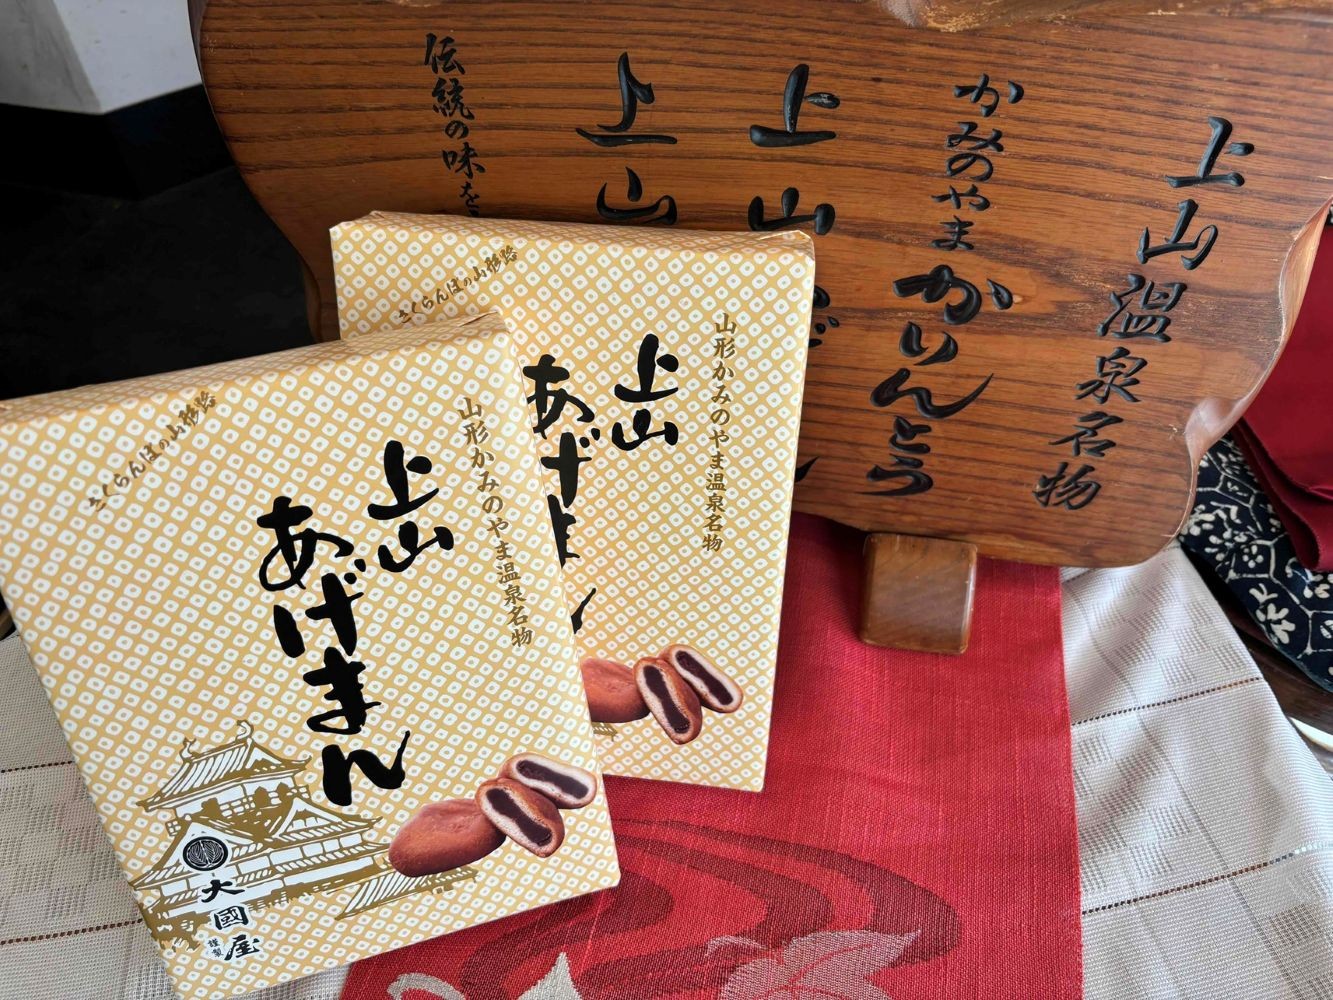 上山温泉名物
かみのやま
かりんとう
上山
上山
伝統の味を
さくらんぼの山形路
山形かみのやま温泉名物
上山
あげまん
さくらんぼの山形路
山形かみのやま温泉名物
上山
あげまん
大國屋
謹製